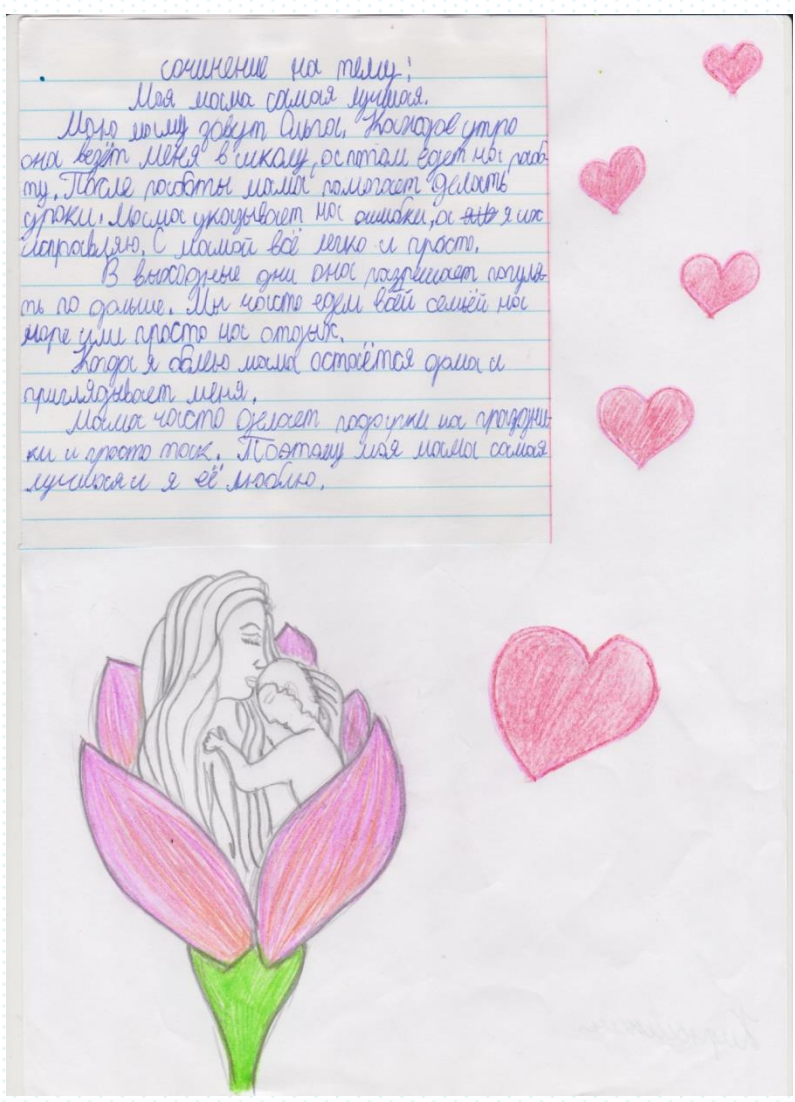 сочинение на тему:
Моя мама самая лучшая.
Мою маму зовут Ольга. Каждое утро
она везёт меня в школу, а потом едет на рабо-
ту. После работы мама помогает делать
уроки. Мама указывает на ошибки, а я их
исправляю. С мамой всё легко и просто.
В выходные дни она разришает погуля-
ть по дольше. Мы часто едем всей семьёй на
море или просто на отдых.
Когда я облею мама остаётся дома и
приглядывает меня.
Мама часто делает подарки на праздни-
ки и просто так. Поэтому моя мама самая
лучшая и я её люблю.